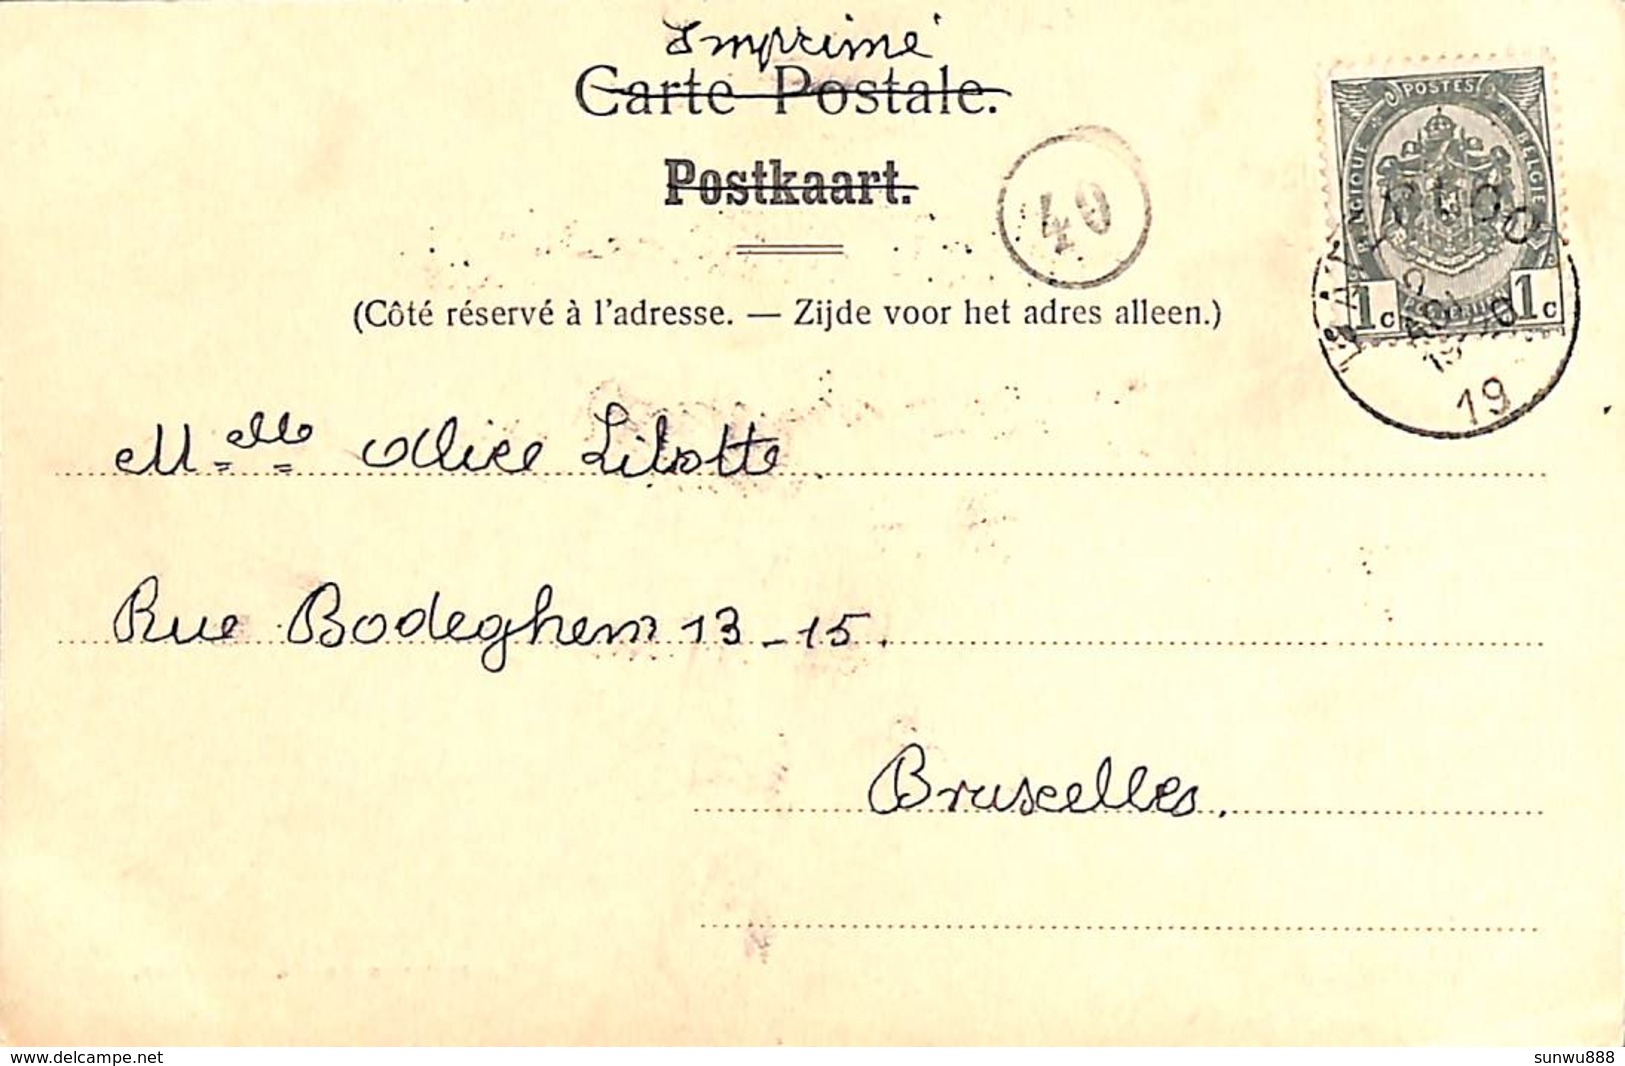 Imprimé
Carte Postale.
Postkaart.
40
POSTES
BELGIQUE
BELGIE
1c
1c
19
(Côté réservé à l'adresse. — Zijde voor het adres alleen.)
Melle Alice Lilotte
Rue Bodeghem 13-15.
Bruxelles.
www.delcampe.net
sunwu888